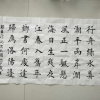 行舟綠水前
潮平兩岸闊
風正一帆懸
海日生殘夜
江春入舊年
鄉書何處達
歸雁洛陽邊